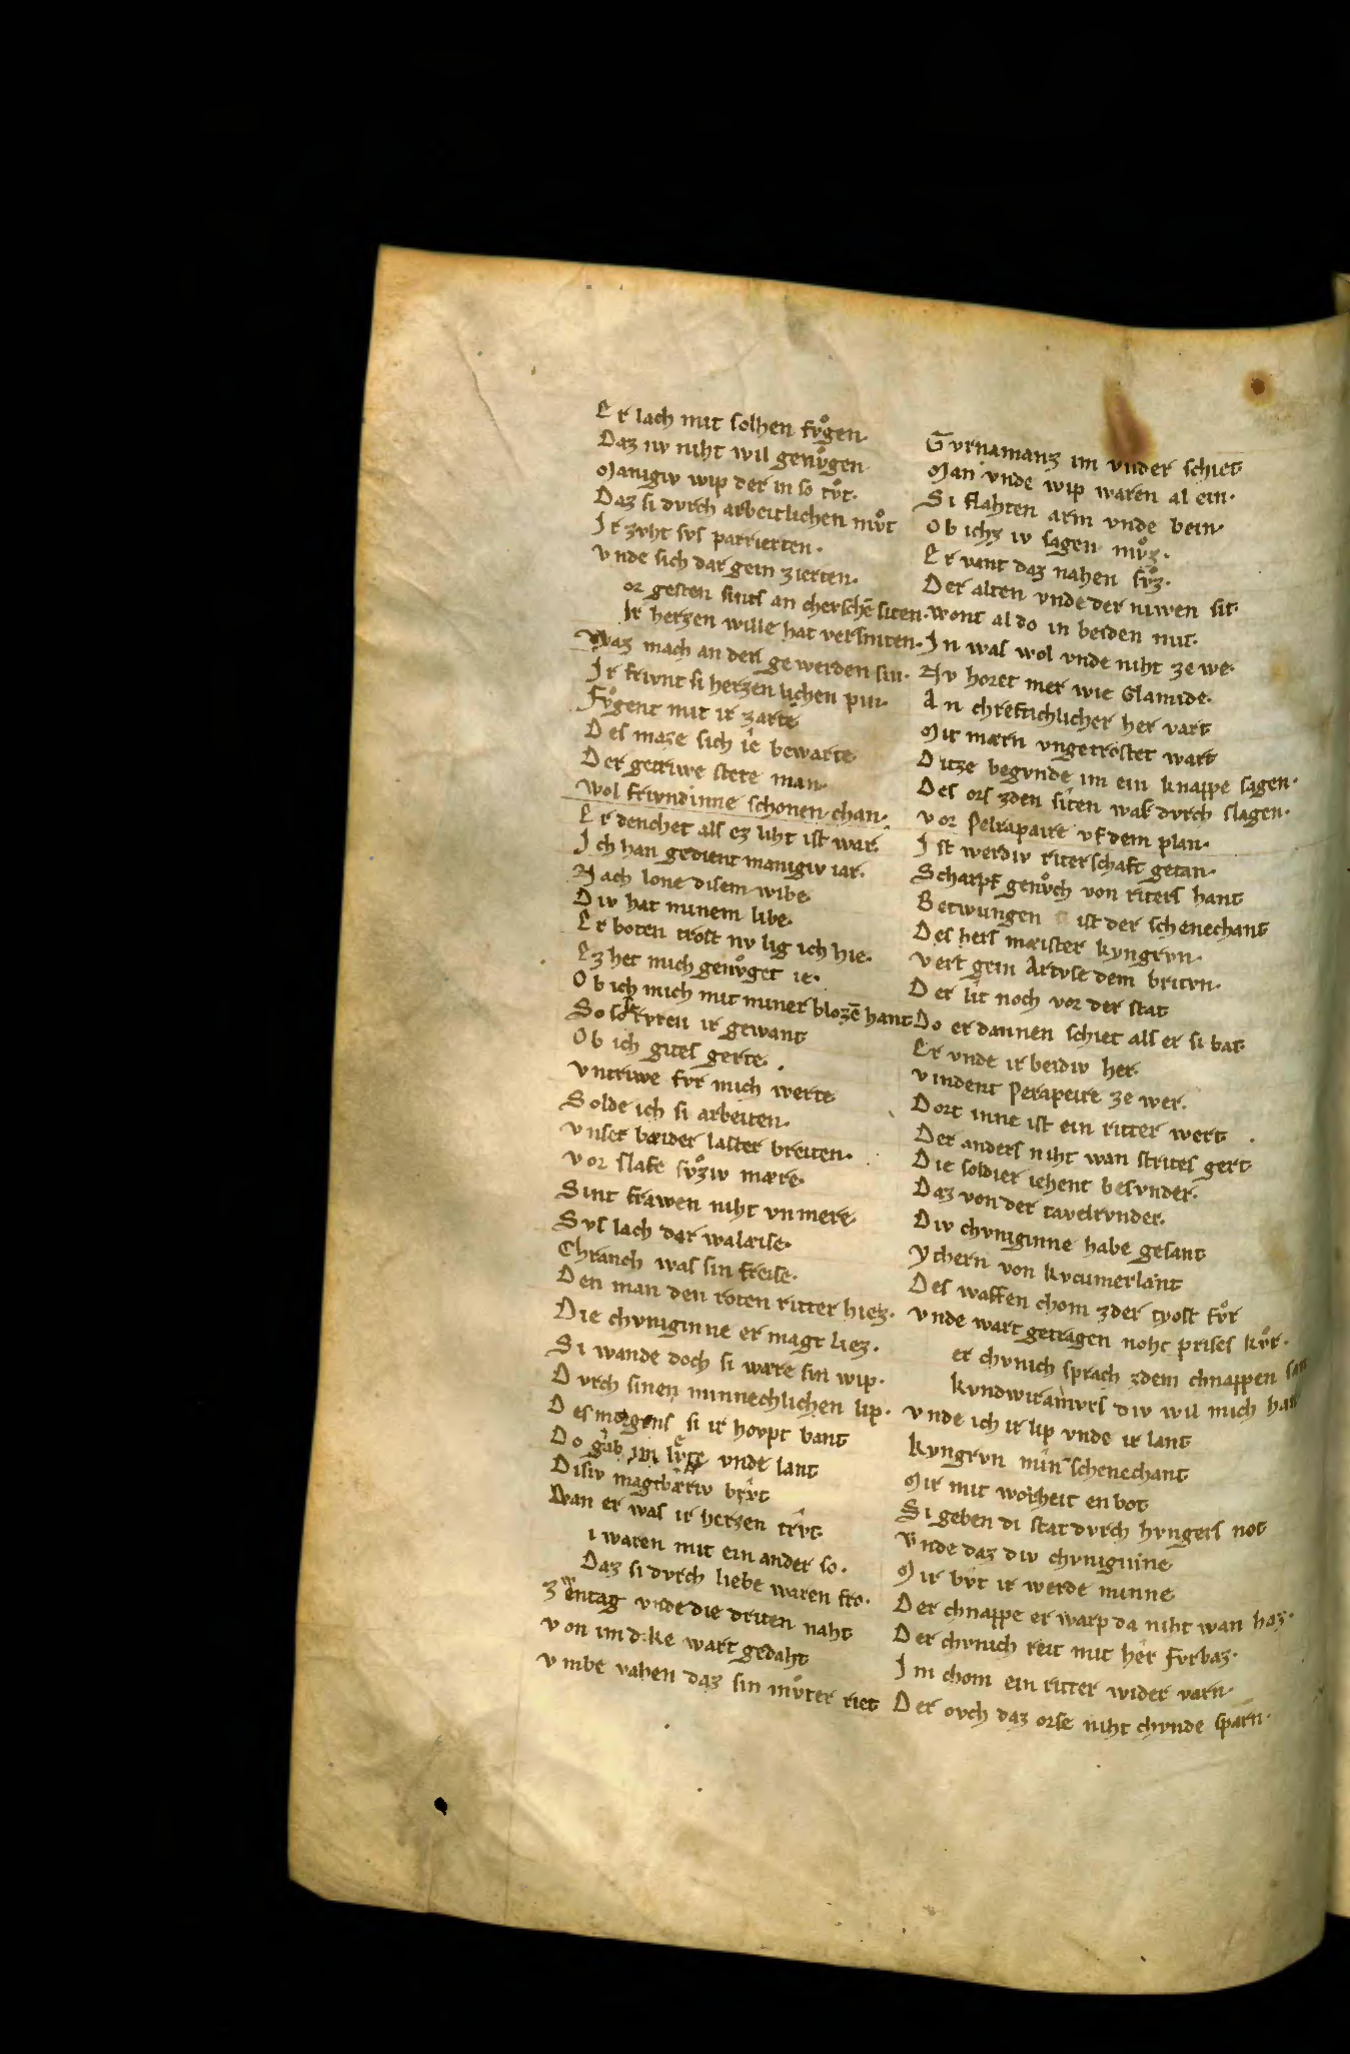 Er lach mit solhen fvͦgen·
Daz iv niht wil genvͦgen
Manigiv wip der in so tvͦt·
Daz si dvrch arbeitlichen mvͦt
Ir zvht svs parrierten·
Vnde sich dar gein zierten·
or gesten sints an cherschē siten·
Ir herzen wille hat versniten·
Waz mach an den ge werden sin·
Ir frivnt si herzenlichen pin·
Fvͦgent mit ir zarte
Des maze sich ie bewarte
Der getriwe stete man·
Wol frivndinne schonen chan·
Er denchet als ez liht ist war·
Ich han gedient manigiv iar·
Nach lone disem wibe
Div hat minem libe·
Er boten trost nv lig ich hie·
Ez het mich genvͦget ie·
Ob ich mich mit miner blozē hant
So solt rvren ir gewant
Ob ich gites gerte·
Vntriwe fvr mich werte
Solde ich si arbeiten·
Vnser bæider laster breiten·
Vor slafe svͦziv mære·
Sint frawen niht vnmere·
Svs lach dar walæise·
Chranch was sin freise·
Den man den roten ritter hiez·
Die chvniginne er magt liez·
Si wande doch si wære sin wip·
Dvrch sinen minnechlichen lip·
Des morgens si ir hovpt bant
Do gab im bvrge vnde lant
Disiv magtbæriv brvt
Wan er was ir herzen trvt
i waren mit ein ander so·
Daz si dvrch liebe waren fro·
Zwentag vnde die driten naht
Von im dike wart gedaht
Vmbe vahen daz sin mvͦter riet
Gvrnamanz im vnder schiet
Man vnde wip waren al ein·
Si flahten arm vnde bein·
Ob ichz iv sagen mvͦz·
Er vant daz nahen svͦz·
Der alten vnde der niwen sit
Wont al do in beiden mit·
In was wol vnde niht ze we·
Nv horet mer wie Clamide·
An chreftichlicher her vart
Mit mærn vngetrostet wart
Ditze begvnde im ein knappe sagen·
Des ors zden siten was dvrch slagen·
Vor Pelrapaire vf dem plan·
Ist werdiv riterschaft getan·
Scharpf genvͦch von riters hant
Betwungen ist der schenechant
Des hers mæister kyngrvn·
Vert gein Artvse dem britvn·
Der lit noch vor der stat
Do er dannen schiet als er si bat·
Er vnde ir beidiv her·
Vindent Perapeire ze wer·
Dort inne ist ein ritter wert
Der anders niht wan strites gert
Die soldier iehent besvnder·
Daz von der tavelrvnder·
Div chvniginne habe gesant
Ythern von kvcumerlant
Des waffen chom zder tyost fvͦr
Vnde wart getragen noht prises kvͦr·
er chvnich sprach zdem chnappen san
kvndwiramvrs div wil mich han
Vnde ich ir lip vnde ir lant
Kyngrvn min schenechant
Mir mit worheit enbot
Si geben di stat dvrch hvngers not
Vnde daz div chvniginne
Mir bvt ir werde minne
Der chnappe er warp da niht wan haz·
Der chvnich reit mit her fvrbaz·
Im chom ein ritter wider varn·
Der ovch daz orse niht chvnde sparn·